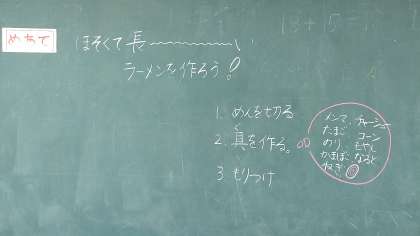 めあて
ほそくて長〜〜〜い
ラーメンを作ろう!
1. めんを切る
2. 具を作る。
3. もりつけ
メンマ、チャーシュー
たまご コーン
のり もやし
かまぼこ なると
ねぎ